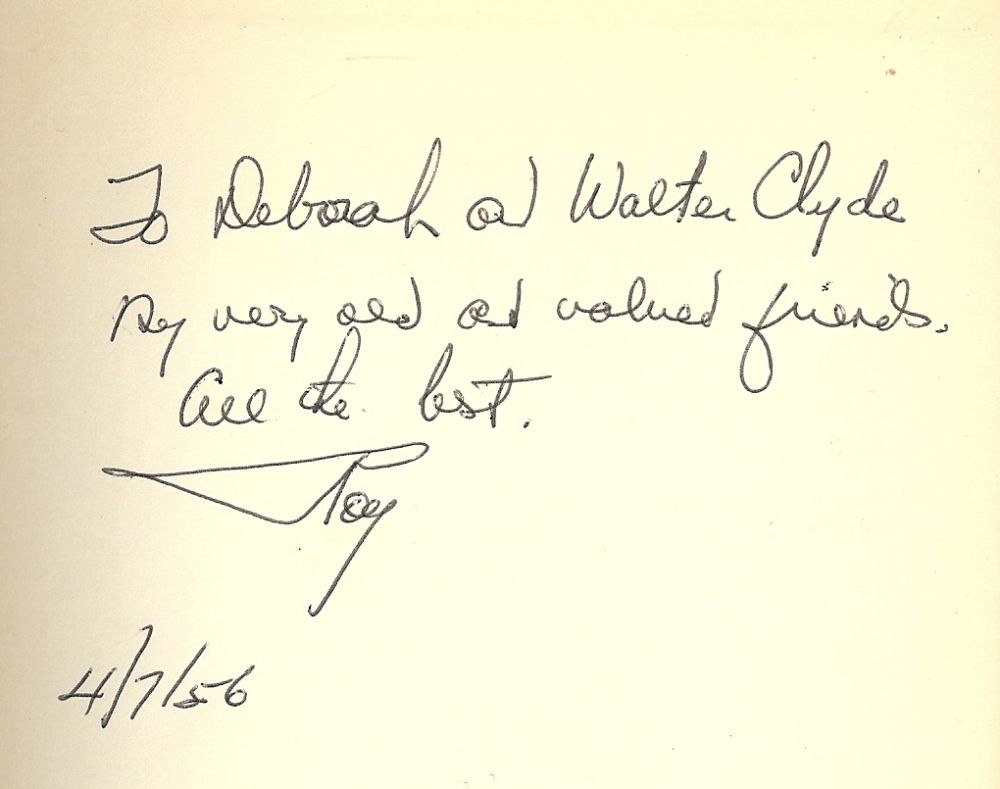 To Deborah and Walter Clyde
My very old and valued friends.
All the best.
Roy
4/7/56